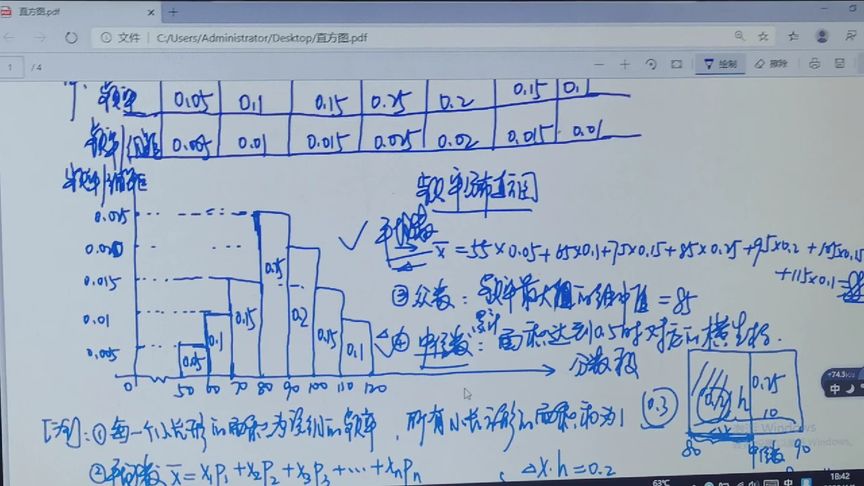 直方图.pdf
文件 C:/Users/Administrator/Desktop/直方图.pdf
1 /4 绘制 擦除
频率 0.05 0.1 0.15 0.25 0.2 0.15 0.1
频率/组距 0.005 0.01 0.015 0.025 0.02 0.015 0.01
频率/组距
频率分布直方图
0.025
0.020
0.015
0.01
0.005
0.05 0.1 0.15 0.25 0.2 0.15 0.1
0 50 60 70 80 90 100 110 120
分数段
平均数 x̄ = 55×0.05+65×0.1+75×0.15+85×0.25+95×0.2+105×0.15
+115×0.1=
众数: 频率最大组的组中值=85
中位数: 累计面积达到0.5时对应的横坐标.
0.3 h 0.25
10
80 中位数 90
[注]: ① 每一个小长形的面积为该组的频率, 所有小长方形的面积和为1
② 平均数 x̄ = x₁p₁+x₂p₂+x₃p₃+⋯+xₙpₙ
△x·h=0.2
中
63℃
中
18:42